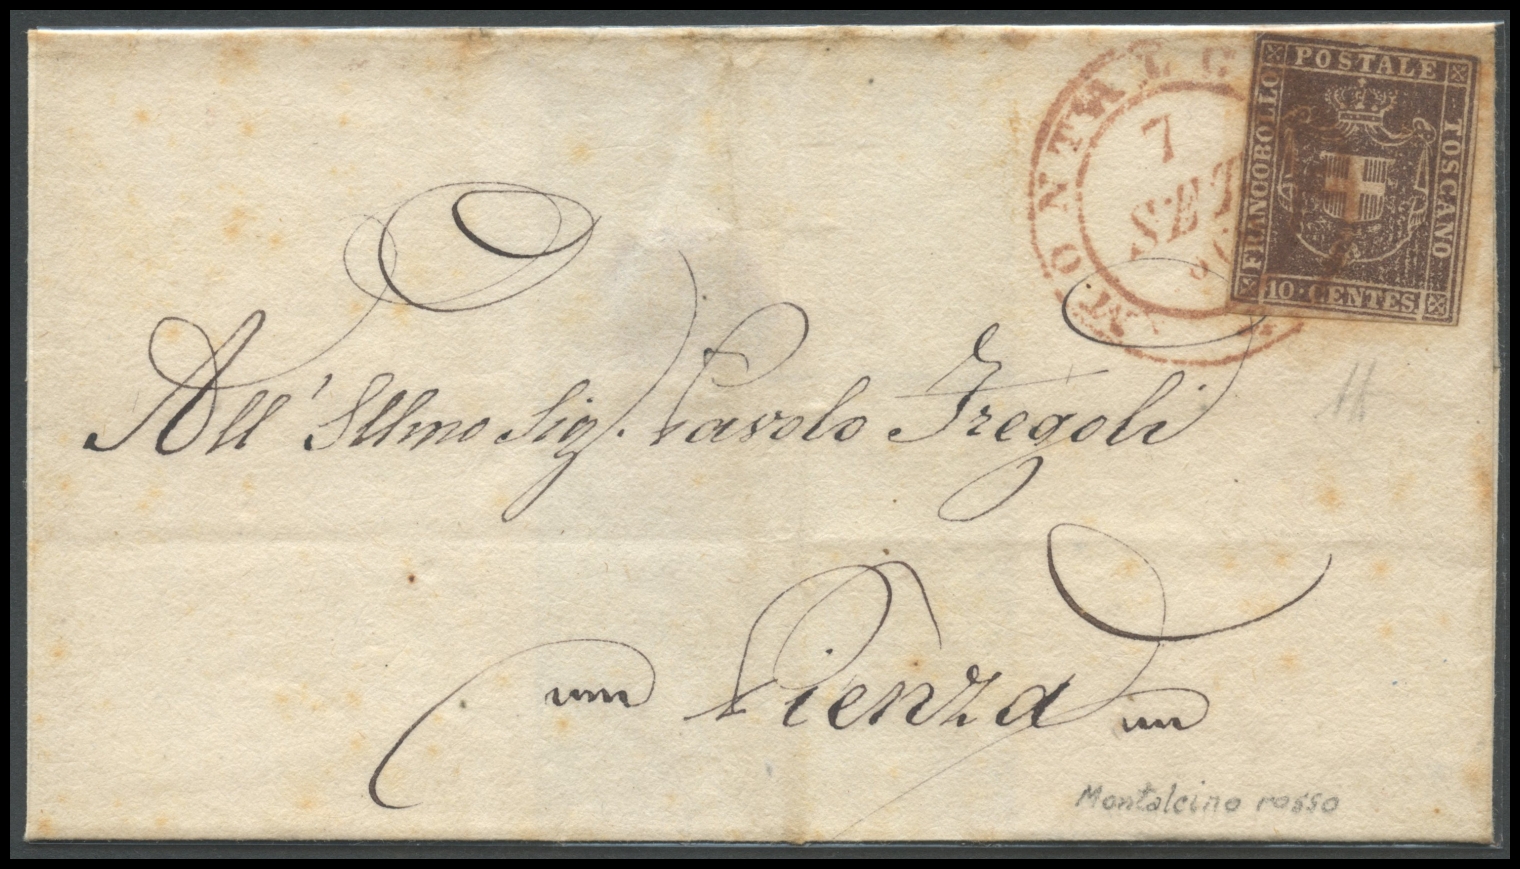 MONTALC
7
SET
POSTALE
FRANCOBOLLO
TOSCANO
10 · CENTES.
All' Illmo Sig. Pavolo Fregoli
Pienza
Montalcino rosso